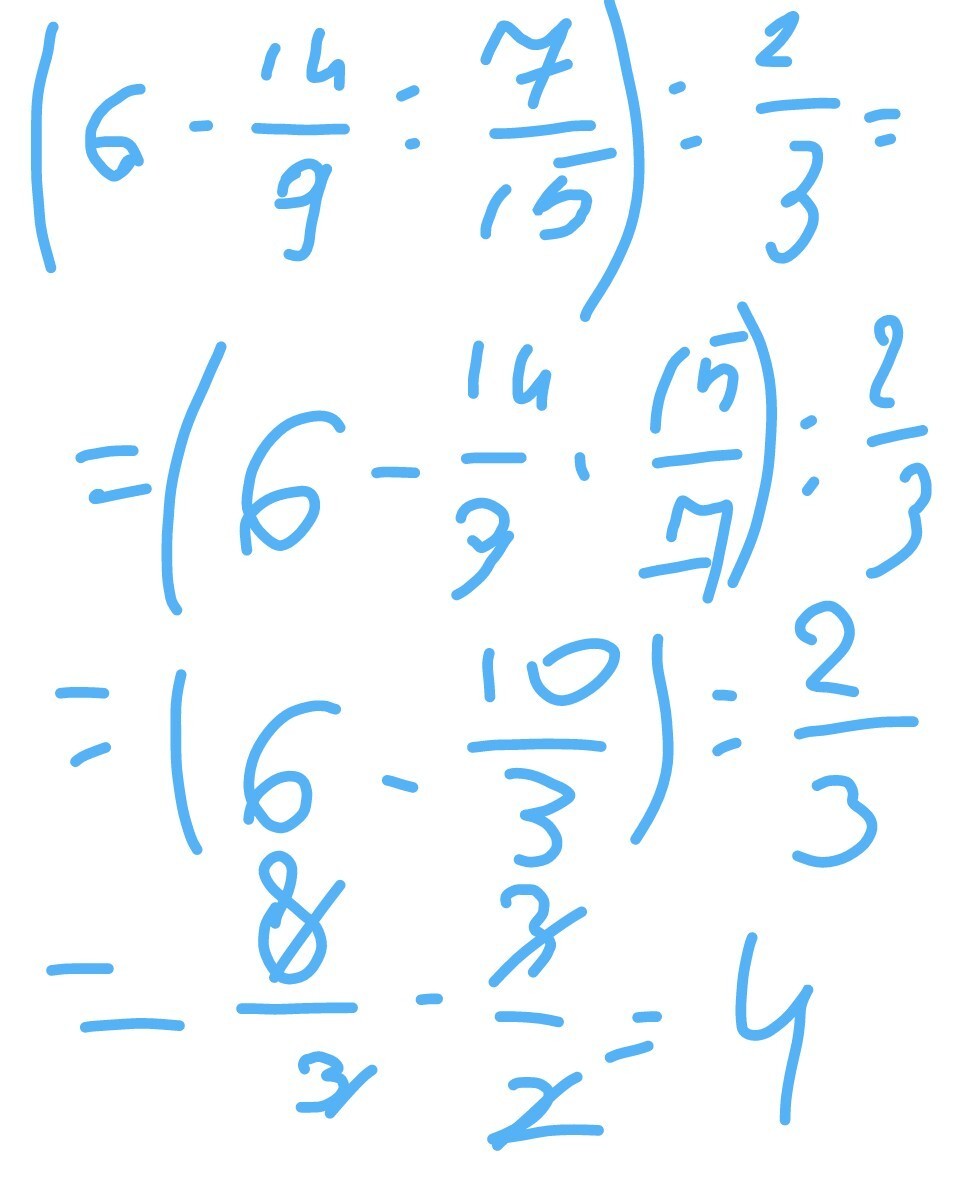 (6 - 14/9 : 7/15) : 2/3 =
= (6 - 14/9 · 15/7) : 2/3
= (6 - 10/3) : 2/3
= 8/3 - 3/2 = 4